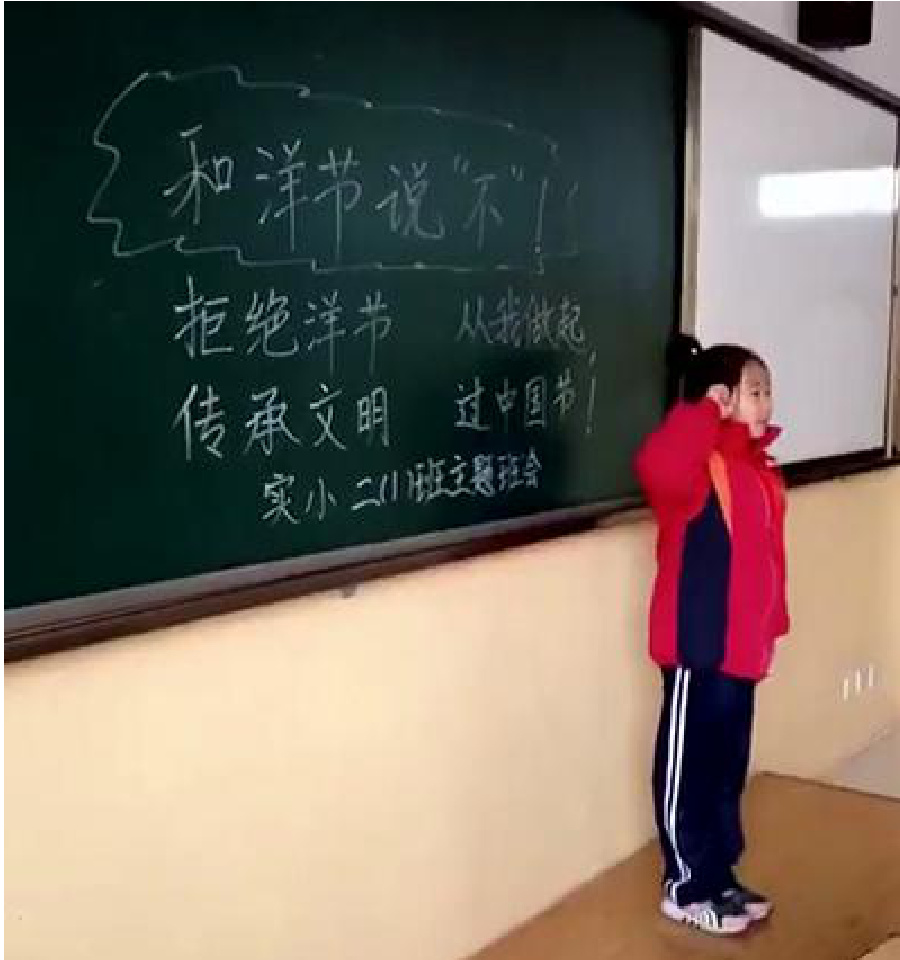 和洋节说“不”！
拒绝洋节 从我做起，
传承文明 过中国节！
实小二(1)班主题班会